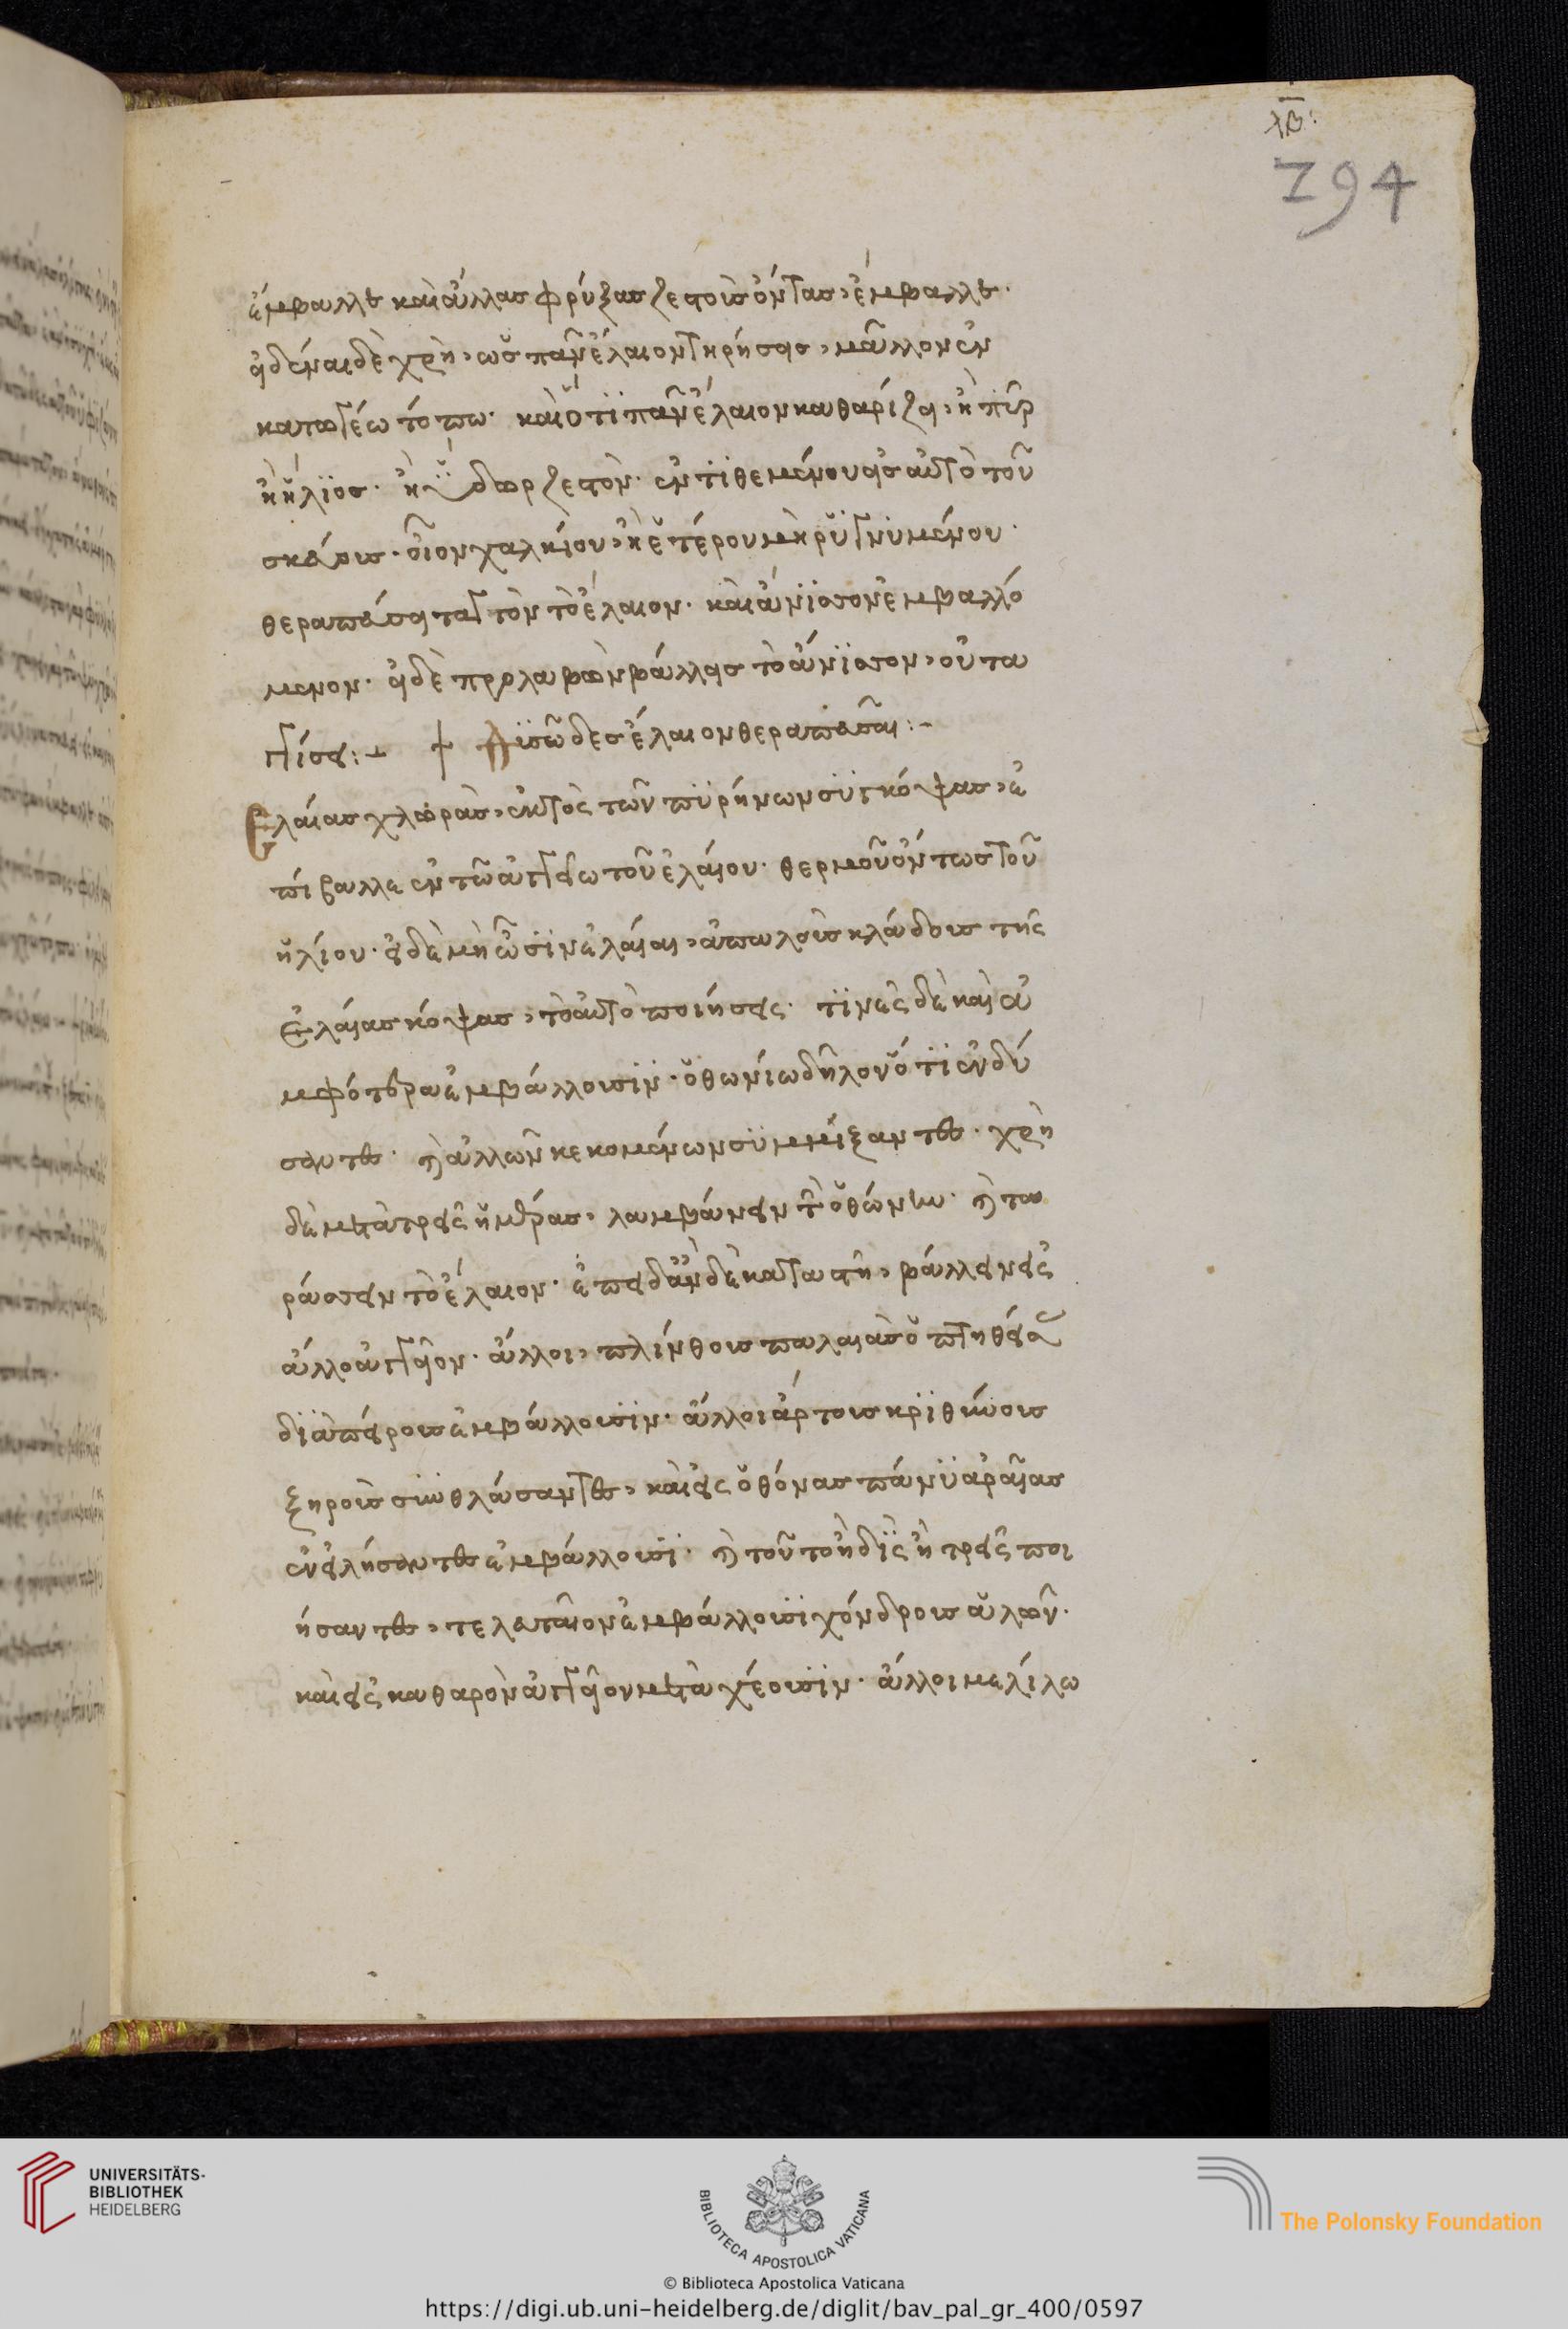 λβ:
294
ἔμβαλλε καὶ ἄλλας φρύξας ζεστοὺς ὄντας, ἔμβαλλε.
εἰδέναι δὲ χρὴ, ὡς πᾶν ἔλαιον τηρήσεις, μᾶλλον ἐν
κατωγέω τόπω. καὶ ὅτι πᾶν ἔλαιον καθαρίζει, ἢ πῦρ
ἢ ἥλιος. ἢ ὕδωρ ζεστὸν. ἐντιθεμένου εἰς αὐτὸ τοῦ
σκεύους. οἷον χαλκείου, ἢ ἑτέρου μὴ ῥυγνυμένου.
θεραπεύσει ταγγὸν τὸ ἔλαιον. καὶ ἄνισον ἐμβαλλό
μενον. εἰ δὲ προλαβὼν βάλλεις τὸ ἄνισον, οὐ τα
γγίσει:- † δυσῶδες ἔλαιον θεραπεῦσαι:-
Ἐλαίας χλωρὰς, ἐκτὸς τῶν πυρήνων συγκόψας, ἐ
πίβαλλε ἐν τῶ ἀγγείω τοῦ ἐλαίου. θερμοῦ ὄντως τοῦ
ἡλίου. εἰ δὲ μὴ ὦσιν ἐλαίαι, ἁπαλοὺς κλάδους τῆς
ἐλαίας κόψας, τὸ αὐτὸ ποιήσεις. τινὲς δὲ καὶ ἀ
μφότερα ἐμβάλλουσιν. ὀθωνίω δηλονότι ἐνδύ
σαντες. καὶ ἁλλῶν κεκομένων συμμίξαντες. χρὴ
δὲ μετὰ τρεῖς ἡμέρας, λαμβάνειν τὸ ὀθώνιν. καὶ τα
ράσσειν τὸ ἔλαιον. ἐπειδὰν δὲ καταστῆ, βάλλειν εἰς
ἄλλο ἀγγεῖον. ἄλλοι, πλίνθους παλαιὰς ὀπτηθείσας
διαπύρους ἐμβάλλουσιν. ἄλλοι ἄρτους κριθίνους
ξηροὺς συνθλάσαντες, καὶ εἰς ὀθόνας πάνυ ἀραίας
ἐνειλήσαντες ἐμβάλλουσι. καὶ τοῦτο ἢ δὶς ἢ τρεῖς ποι
ήσαντες, τελευταῖον ἐμβάλλουσι χόνδρους ἁλῶν.
καὶ εἰς καθαρὸν ἀγγεῖον μεταχέουσιν. ἄλλοι μελίλω
UNIVERSITÄTS-
BIBLIOTHEK
HEIDELBERG
BIBLIOTECA APOSTOLICA VATICANA
The Polonsky Foundation
© Biblioteca Apostolica Vaticana
https://digi.ub.uni-heidelberg.de/diglit/bav_pal_gr_400/0597